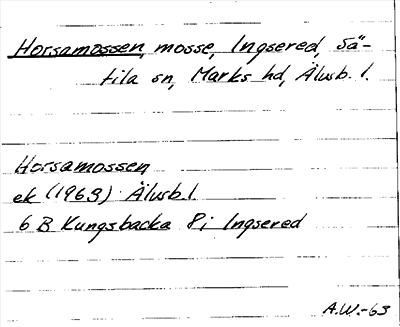 Horsamossen, mosse, Ingsered, Sä-
tila sn, Marks hd, Älvsb. l.
Horsamossen
ek (1963) Älvsb. l
6 B Kungsbacka 8 i Ingsered
A.W.-63